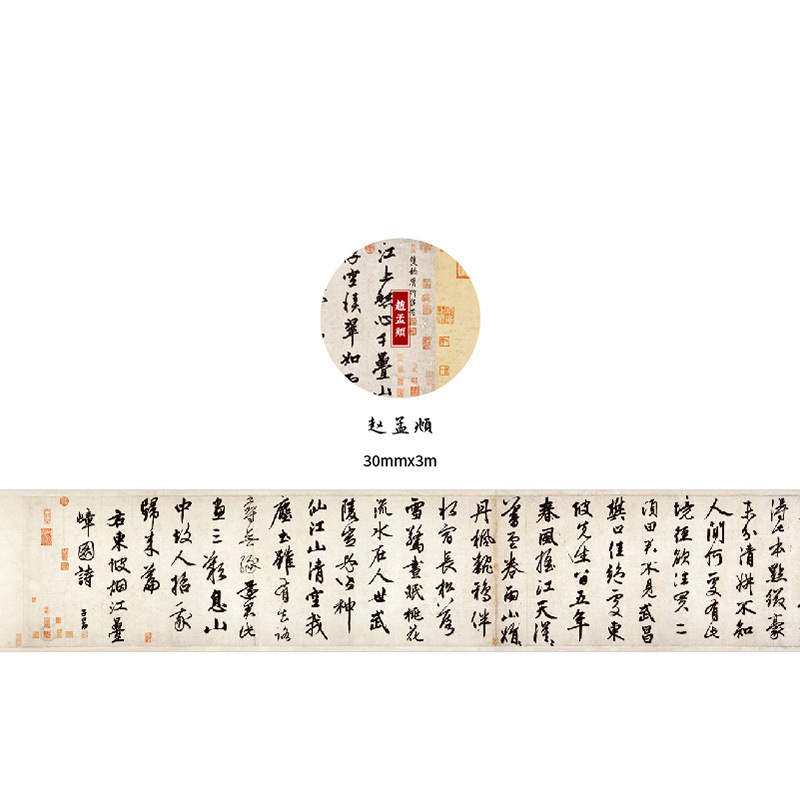 江上愁心千疊山
空積翠如
趙孟頫
赵孟頫
30mmx3m
得此本點綴豪
末分清妍不知
人間何處有此
境徑欲往買二
頃田君不見武昌
樊口佳絕處東
坡先生留五年
春風搖江天漠〻
暮雲卷雨山娟〻
丹楓翻鴉伴
水宿長松落
雪驚晝眠桃花
流水在人世武
陵豈必皆神
仙江山清空我
塵土雖有去路
尋無緣還君此
畫三歎息山
中故人招我
歸來篇
右東坡烟江疊
嶂圖詩 子昂